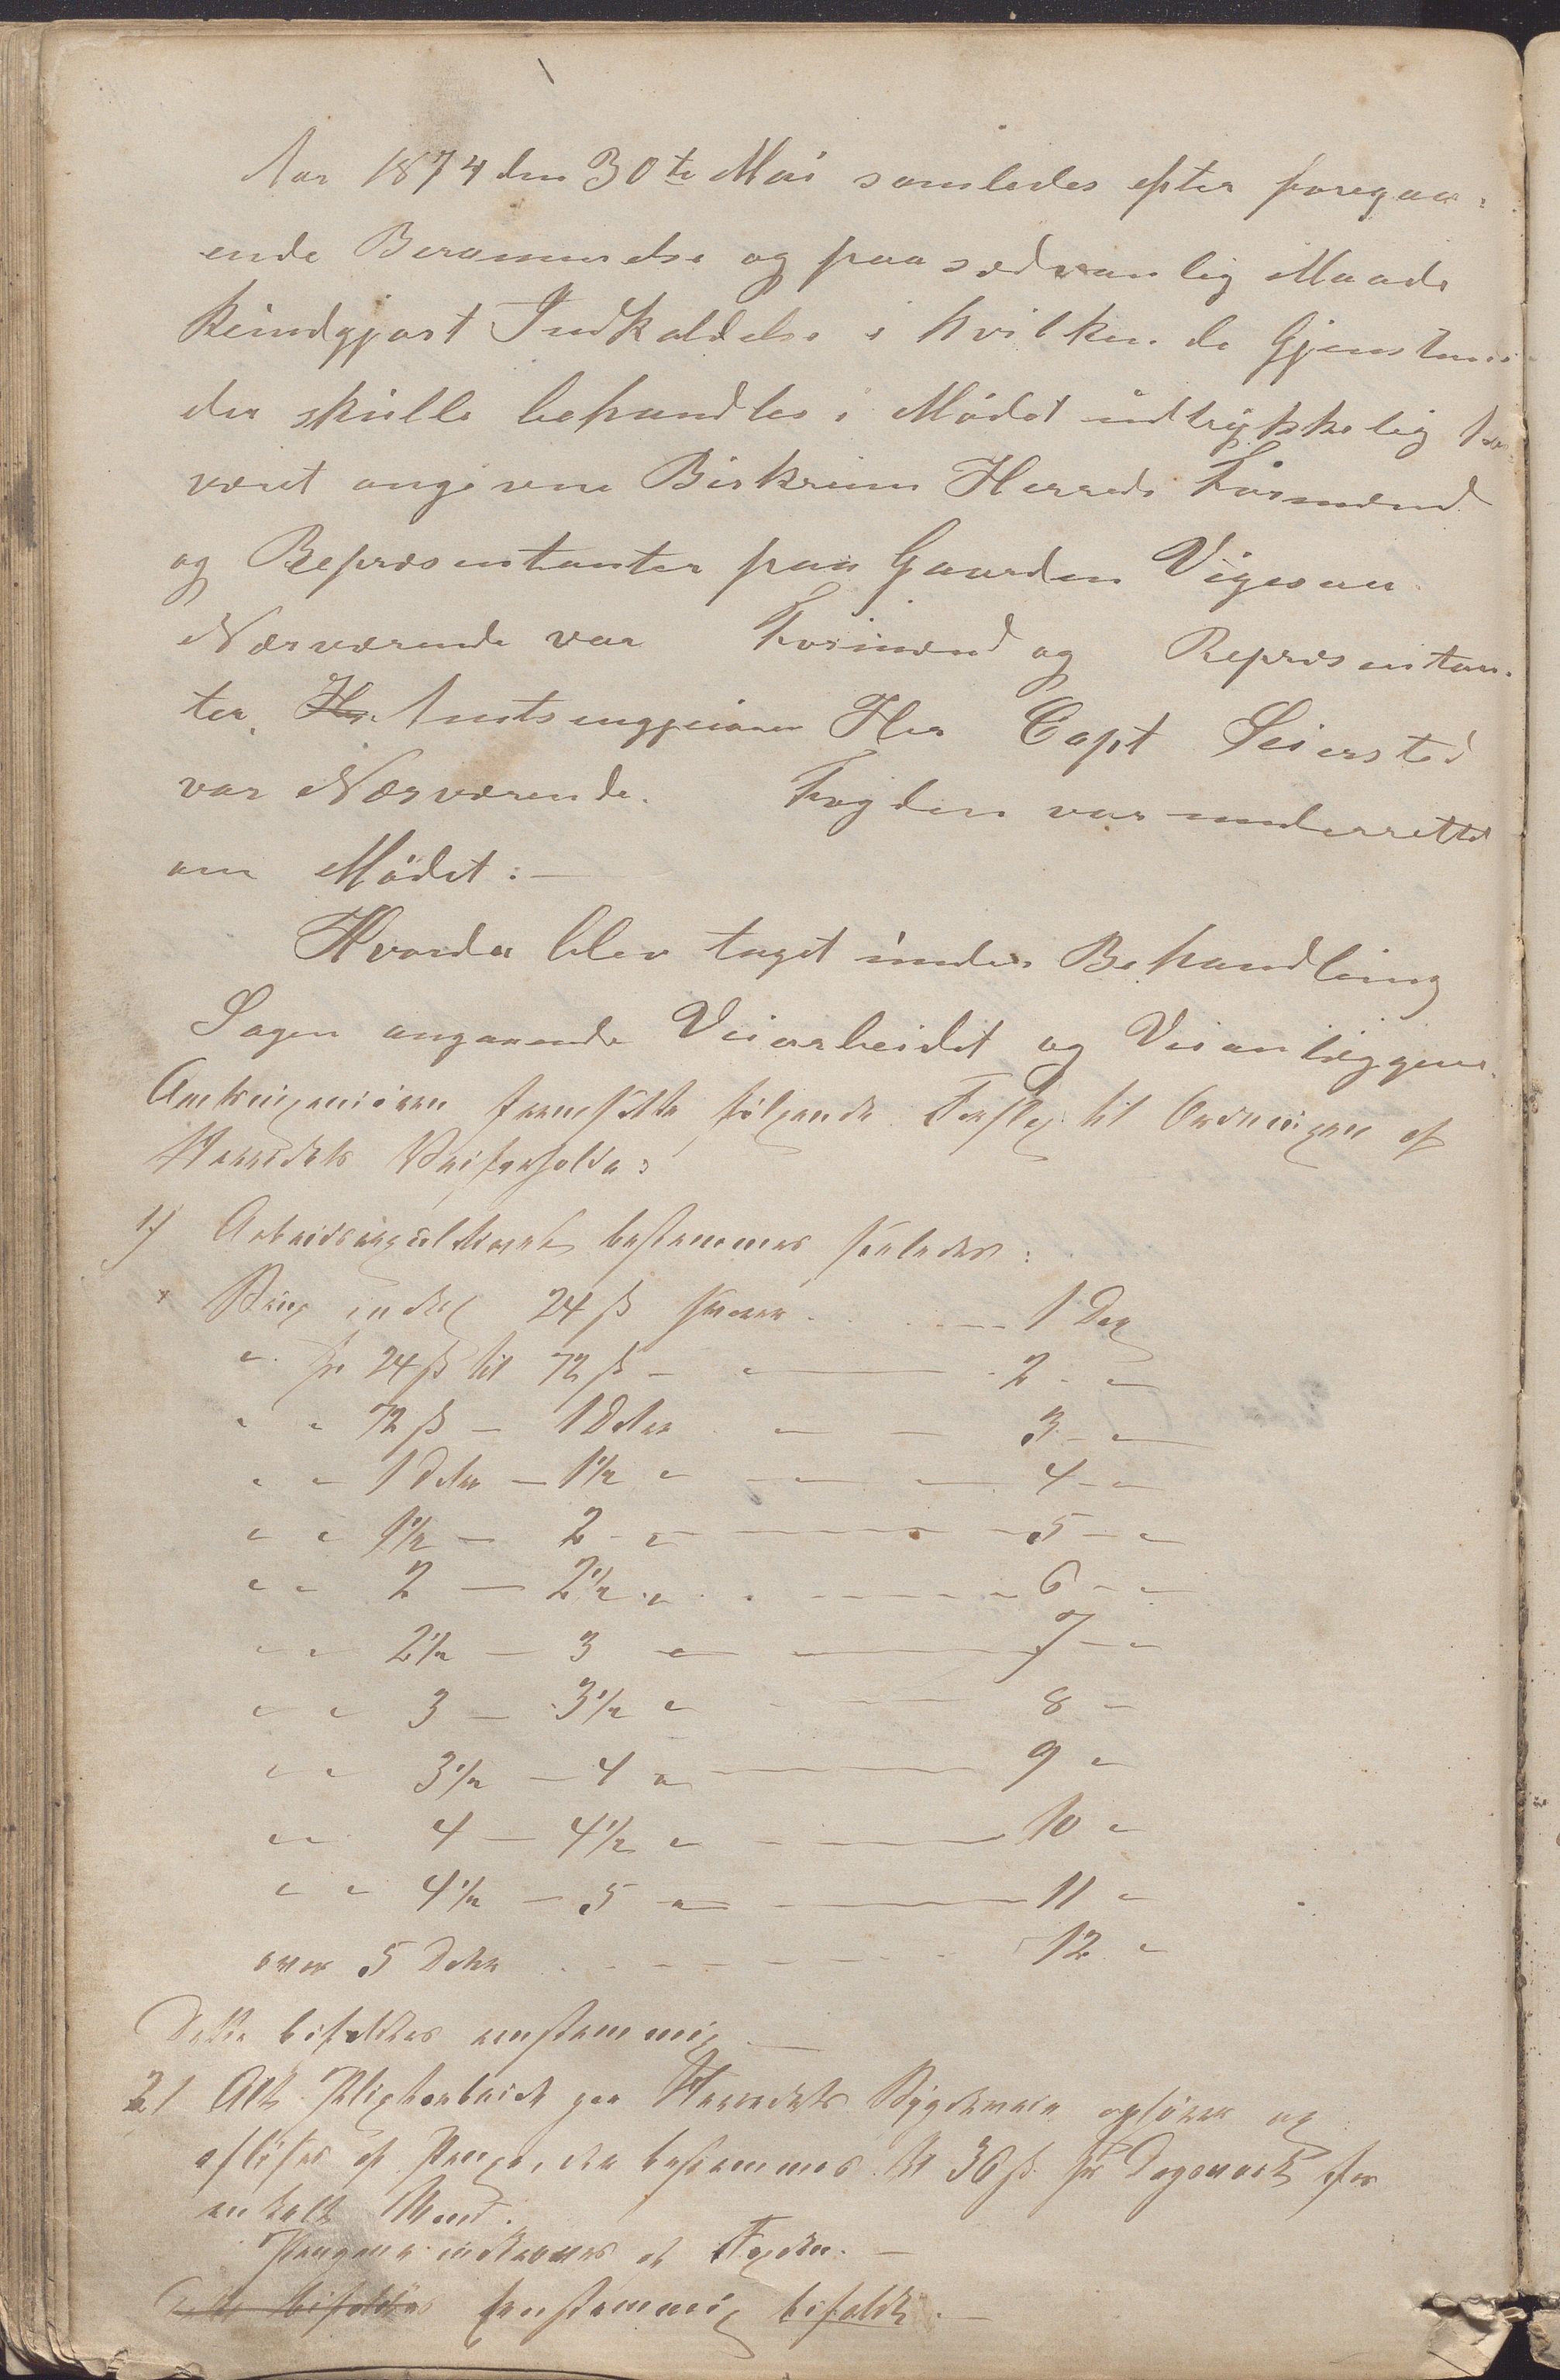 Aar 1874 den 30te Mai samledes efter foregaa-
ende Berammelse og paa sædvanlig Maade
kundgjort Indkaldelse i hvilken de Gjenstan-
der skulle behandles i Mødet udtrykkelig har
været angivne Birkrem Herreds Formænd
og Repræsentanter paa Gaarden Vigesaa
Nærværende var Formænd og Repræsentan-
ter. Amtsingeniøren Her Capt Seiersted
var Nærværende. Fogden var underrettet
om Mødet:—
Hvorda blev taget under Behandling
Sagen angaaende Veiarbeidet og Veianlæggene.
Amtsingeniøren fremsatte følgende Forslag til Ordningen af
Herredets Veiforholde:
1) bestemmes saaledes:
Brug indtil 24 ß Skever . . . . 1 Dag
" fr 24 ß til 72 ß — " — 2 "
" " 72 ß — 1 Daler — — 3 "
" " 1 Daler — 1½ " — " — 4 "
" " 1½ — 2 " — 5 — "
" " 2 — 2½ " — 6 — "
" " 2½ — 3 " — 7 — "
" " 3 — 3½ " — 8 —
" " 3½ — 4 " — 9 "
" " 4 — 4½ " — 10 "
" " 4½ — 5 " — 11 "
over 5 Daler . . . . 12 "
Dette bifaldtes eenstemmig. —
2) Alt Pligtarbeide paa Herredets Bygdeveie ophører og
afløses af Penge, der bestemmes til 36 ß pr Dagsverk for
enkelt Mand.
Pengene inkræves af Fogden. —
Dette bifaldtes Eenstemmig bifaldt. —